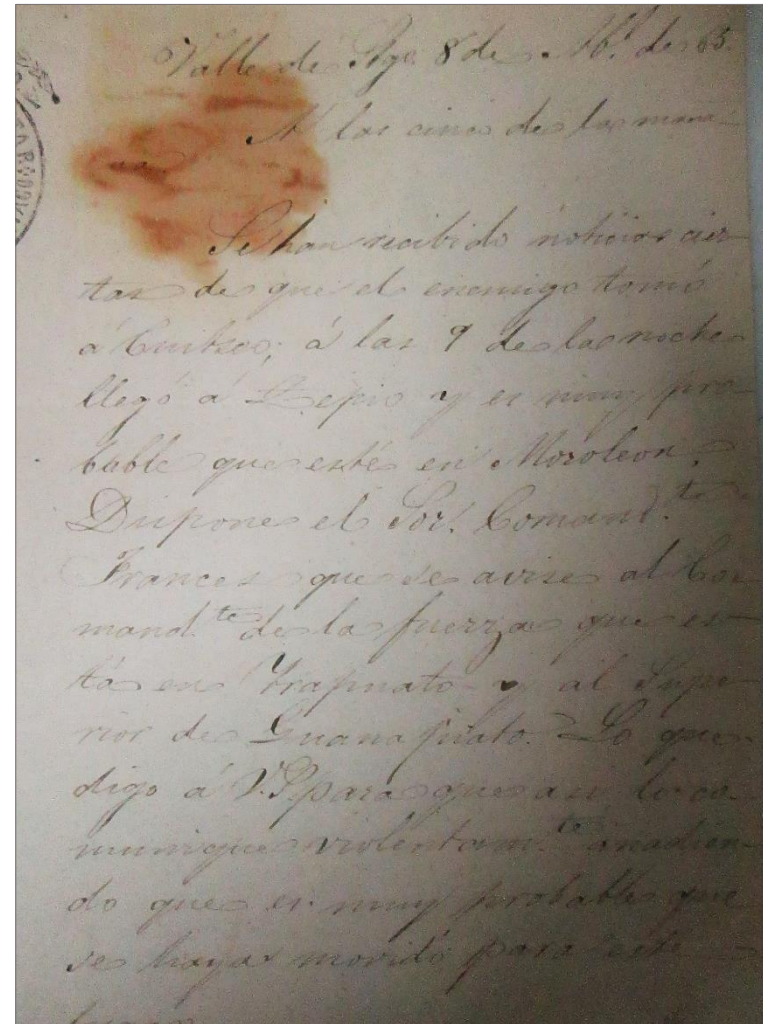 Valle de Sgo. 8 de Mbr. de 65.
A las cinco de la maña-
Se han recibido noticias cier-
tas de que el enemigo tomó
á Cuitzeo, á las 9 de la noche
llegó á Zepio y es muy pro-
bable que esté en Moroleon.
Dispone el Sor. Comand.te
Frances que se avise al Co-
mand.te de la fuerza que es-
tá en Yrapuato y al Supe-
rior de Guanajuato. Lo que
digo á V. para que asi lo co-
munique violentam.te añadien-
do que es muy probable que
se haya movido para este